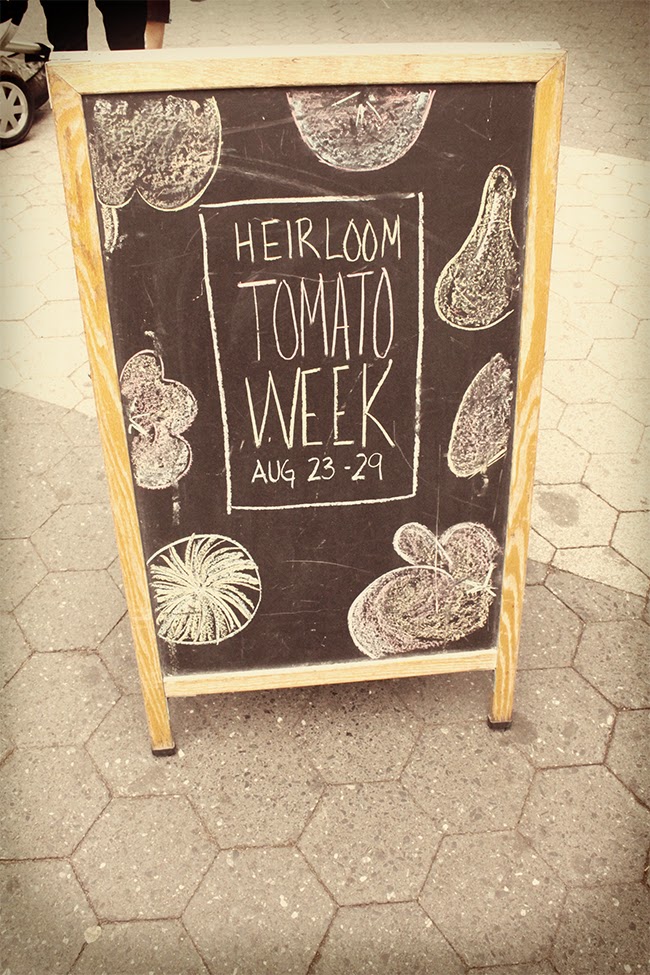 HEIRLOOM
TOMATO
WEEK
AUG 23-29